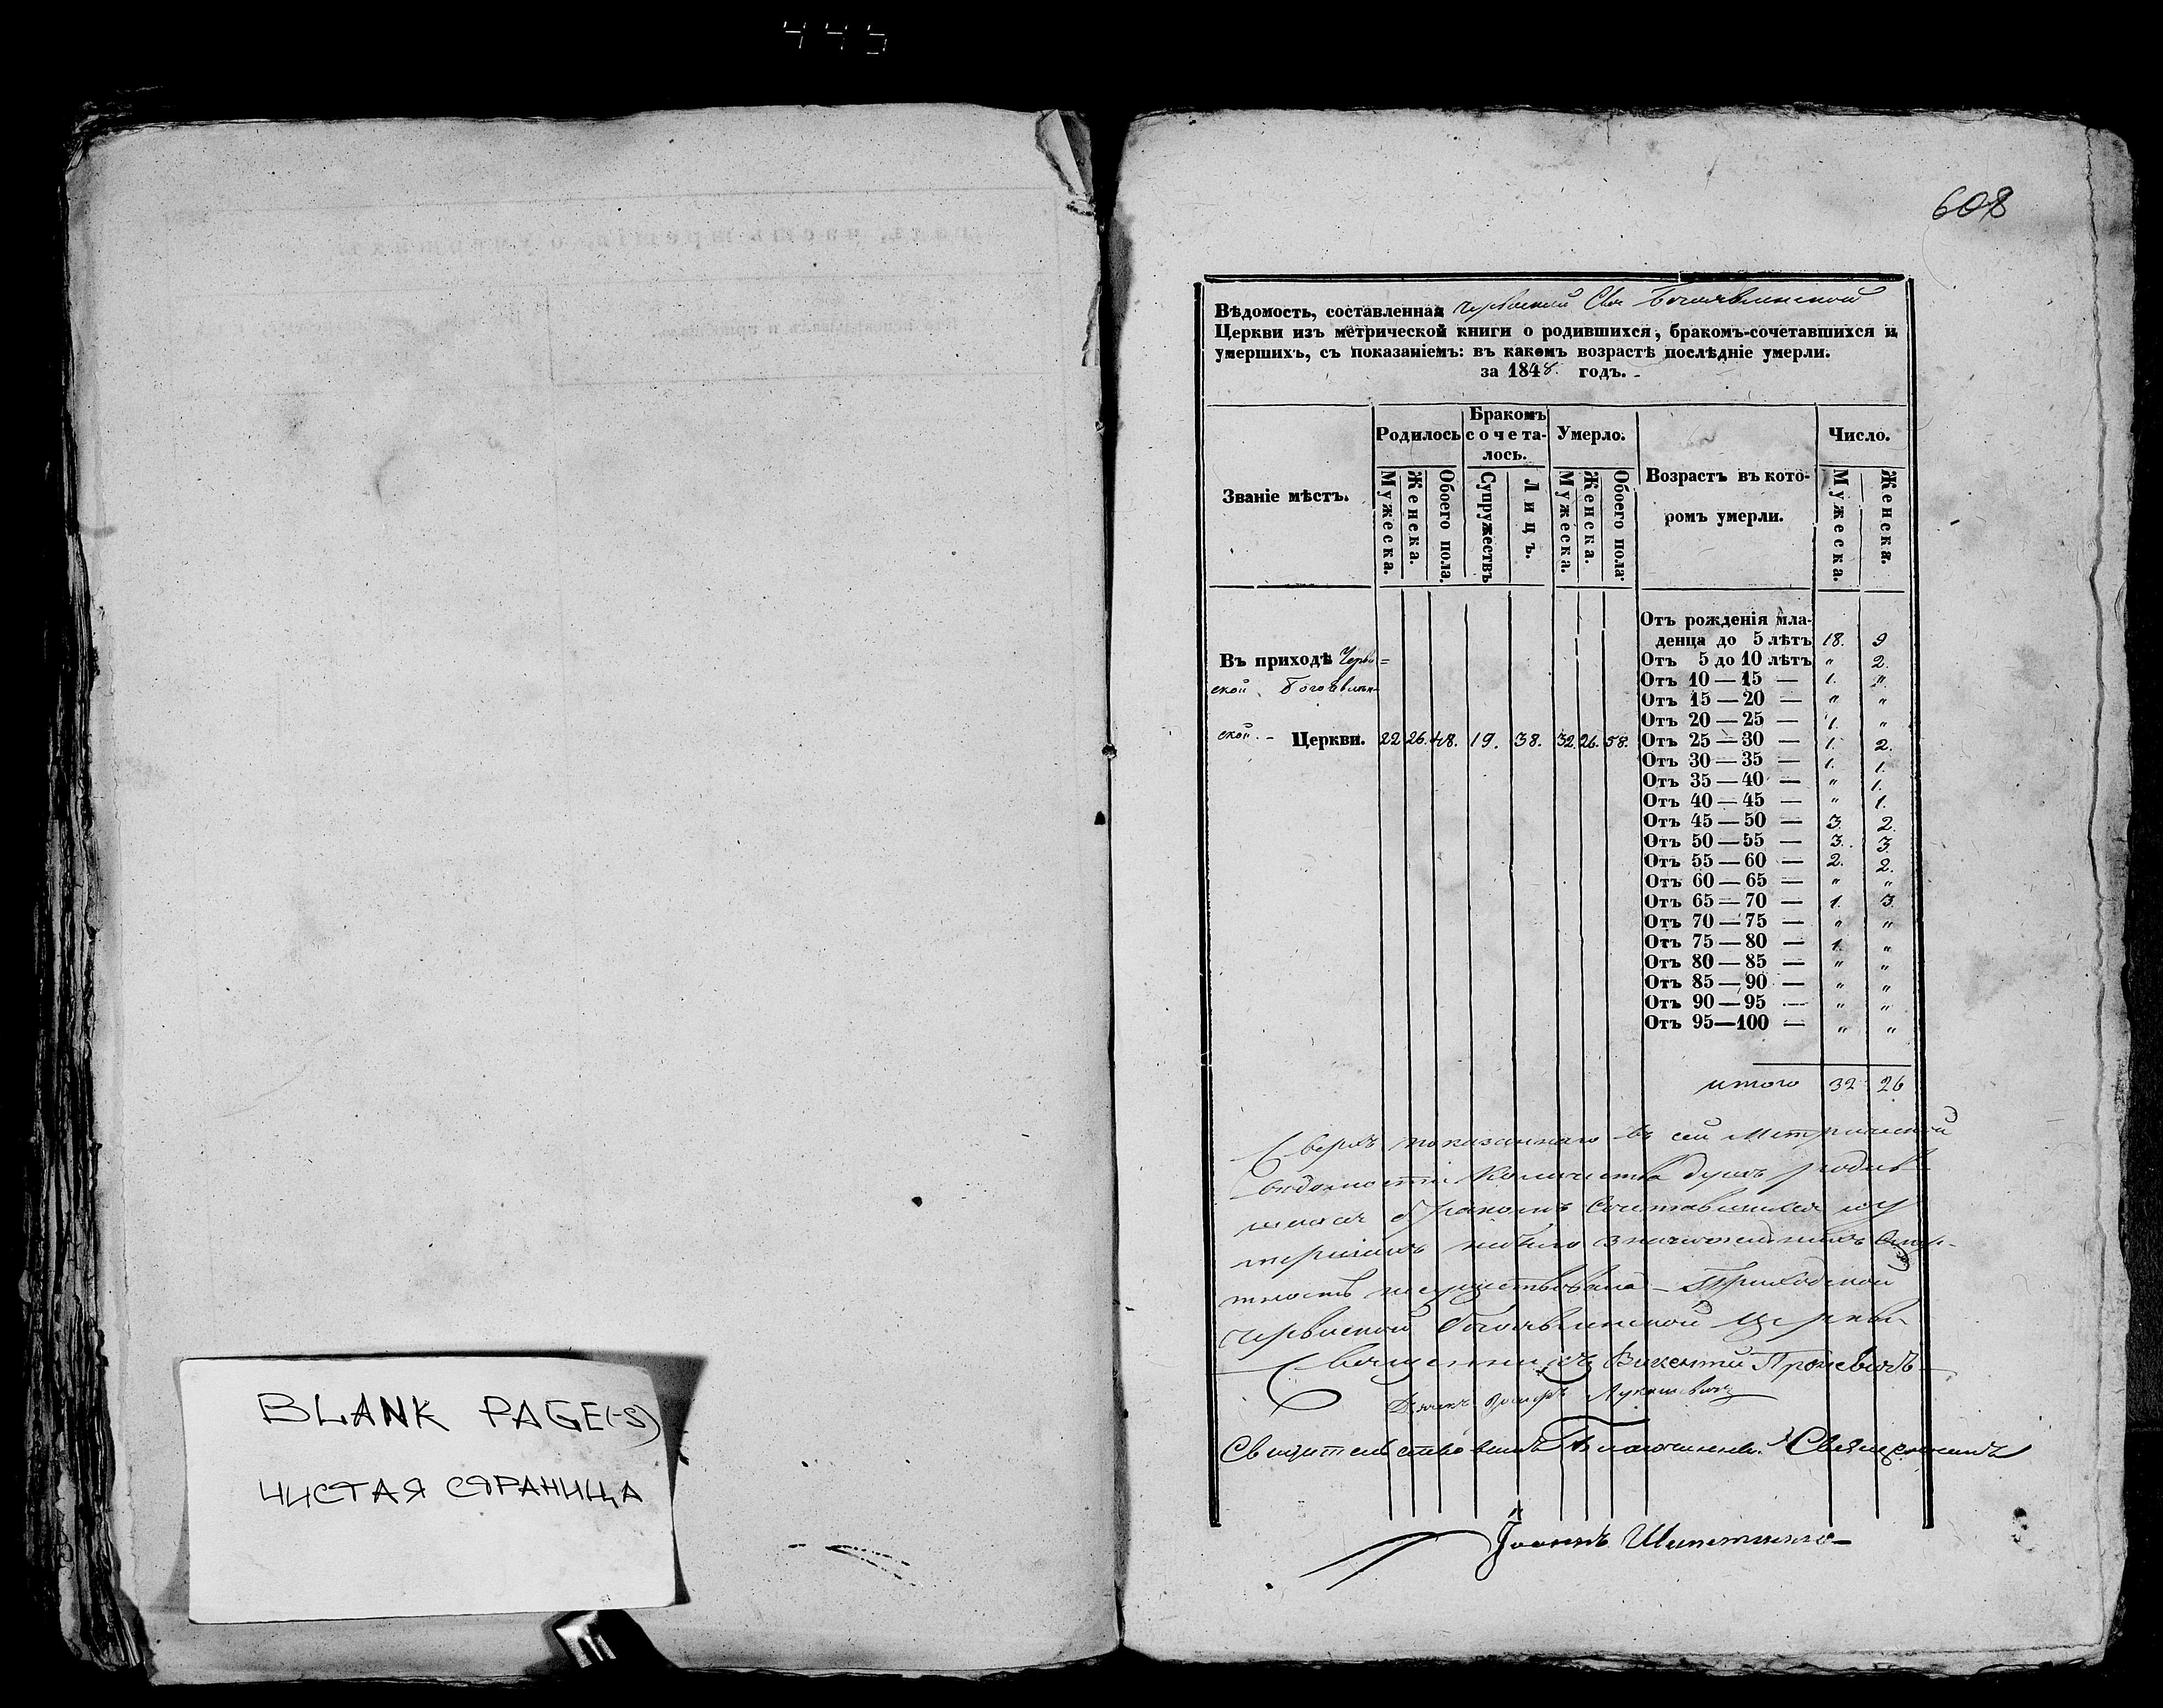 445
BLANK PAGE(-S)
ЧИСТАЯ СТРАНИЦА
608
Вѣдомость, составленная Богоявленской
Церкви изъ метрической книги о родившихся, бракомъ-сочетавшихся и
умершихъ, съ показаніемъ: въ какомъ возрастѣ послѣдніе умерли.
за 1848. годъ.
Званіе мѣстъ.
Родилось
Бракомъ
сочета-
лось.
Умерло.
Возрастъ въ кото-
ромъ умерли.
Число.
Мужеска.
Женска.
Обоего пола.
Супружествъ
Лицъ.
Мужеска.
Женска.
Обоего пола.
Мужеска.
Женска.
Въ приходѣ
ской Богоявлен-
ской. - Церкви. 22 26. 48. 19. 38. 32. 26. 58.
Отъ рожденія мла-
денца до 5 лѣтъ 18. 9
Отъ 5 до 10 лѣтъ " 2.
Отъ 10 — 15 — 1. "
Отъ 15 — 20 — " "
Отъ 20 — 25 — 1. "
Отъ 25 — 30 — 1. 2.
Отъ 30 — 35 — 1. 1.
Отъ 35 — 40 — " 1.
Отъ 40 — 45 — " 1.
Отъ 45 — 50 — 3. 2.
Отъ 50 — 55 — 3. 3.
Отъ 55 — 60 — 2. 2.
Отъ 60 — 65 — " "
Отъ 65 — 70 — 1. 3.
Отъ 70 — 75 — " "
Отъ 75 — 80 — 1. "
Отъ 80 — 85 — " "
Отъ 85 — 90 — " "
Отъ 90 — 95 — " "
Отъ 95—100 — " "
итого 32 26
Сверхъ показаннаго въ сей Метрической
вѣдомости Количества душъ родив-
шихся бракомъ Сочетавшихся и у
мершихъ небыло
Приходской
Богоявленской Церкви
Священникъ Викентій
Дьячекъ Лукашевичъ
Свидѣтельствовалъ Благочинный Священникъ
Іоаннъ